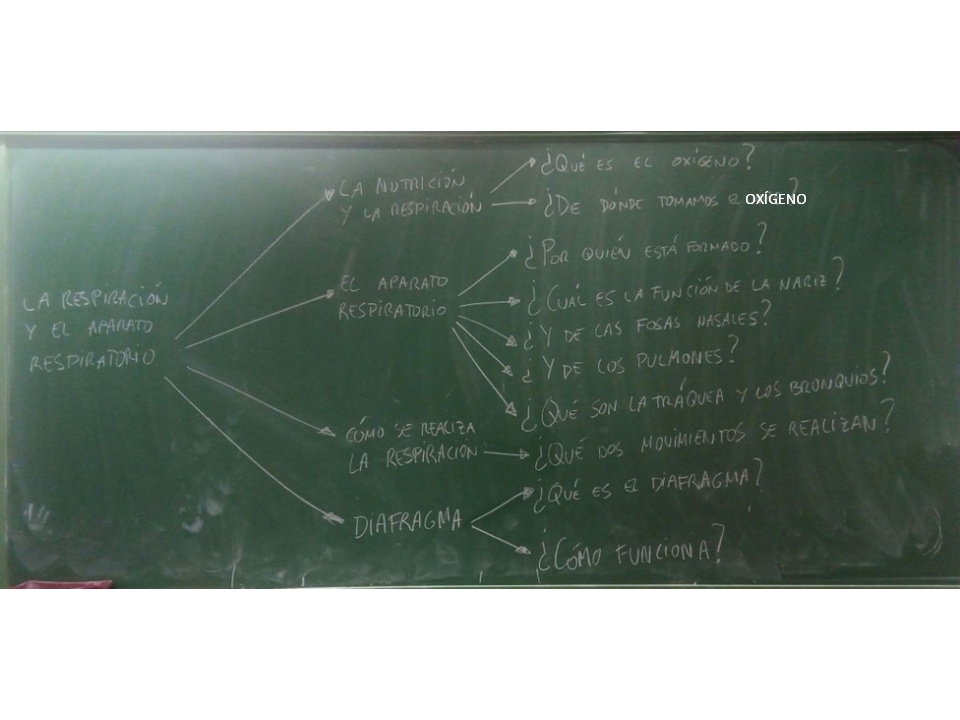 LA RESPIRACIÓN
Y EL APARATO
RESPIRATORIO
LA NUTRICIÓN
Y LA RESPIRACIÓN
¿QUÉ ES EL OXÍGENO?
¿DE DÓNDE TOMAMOS EL OXÍGENO?
EL APARATO
RESPIRATORIO
¿POR QUIÉN ESTÁ FORMADO?
¿CUÁL ES LA FUNCIÓN DE LA NARIZ?
¿Y DE LAS FOSAS NASALES?
¿Y DE LOS PULMONES?
¿QUÉ SON LA TRÁQUEA Y LOS BRONQUIOS?
CÓMO SE REALIZA
LA RESPIRACIÓN
¿QUÉ DOS MOVIMIENTOS SE REALIZAN?
DIAFRAGMA
¿QUÉ ES EL DIAFRAGMA?
¿CÓMO FUNCIONA?